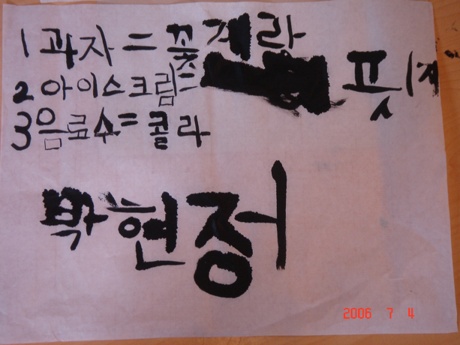 1 과자 = 꽃게라
2 아이스크림 =
3 음료수 = 콜라
박현정
2006 7 4